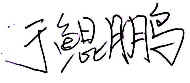 于鲲鹏